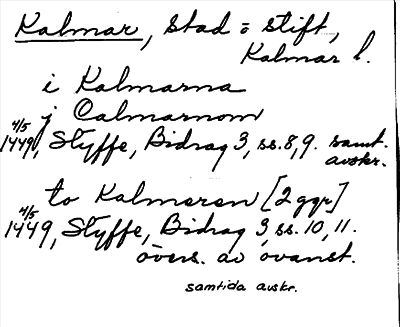 Kalmar, stad o stift,
Kalmar l.
i Kalmarna
j Calmarnom
4/5 1449, Styffe, Bidrag 3, ss. 8, 9. samt. avskr.
to Kalmeren [2 ggr]
4/5 1449, Styffe, Bidrag 3, ss. 10, 11.
övers. av ovanst.
samtida avskr.